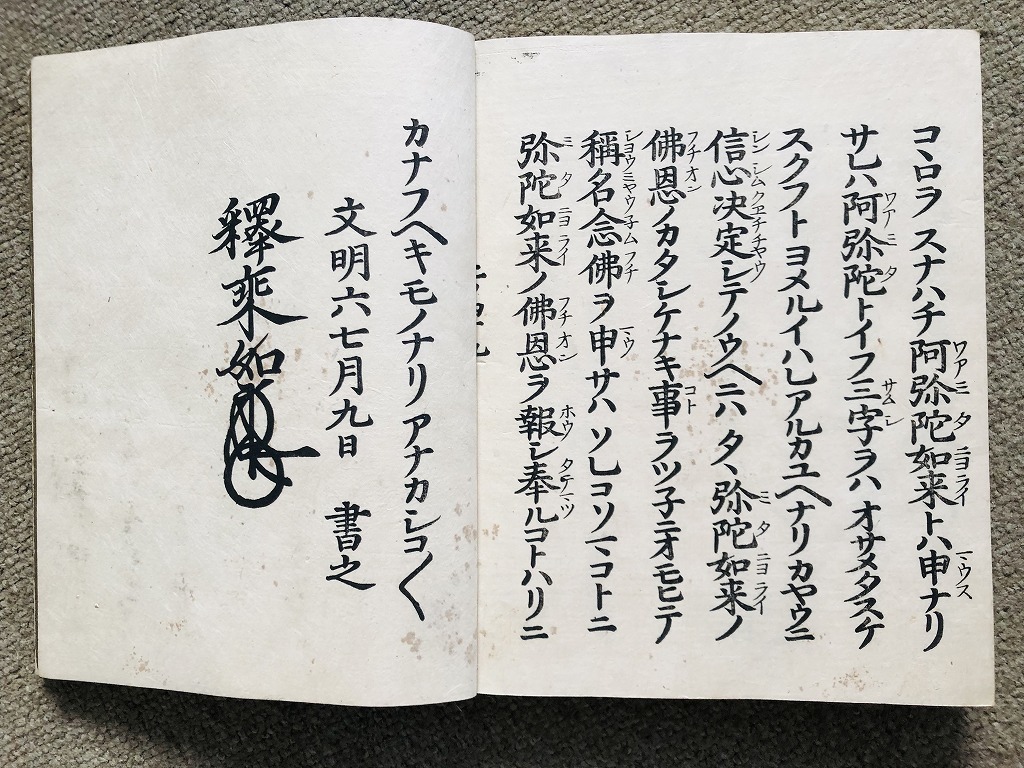 コヽロヲスナハチ阿弥陀如来トハ申ナリ
サレハ阿弥陀トイフ三字ヲハオサメタスケ
スクフトヨメルイハレアルカユヘナリカヤウニ
信心決定シテノウヘニハタヽ弥陀如来ノ
佛恩ノカタシケナキ事ヲツ子ニオモヒテ
稱名念佛ヲ申サハソレコソマコトニ
弥陀如来ノ佛恩ヲ報シ奉ルコトハリニ
カナフヘキモノナリアナカシコ〱
文明六七月九日 書之
釋蓮如